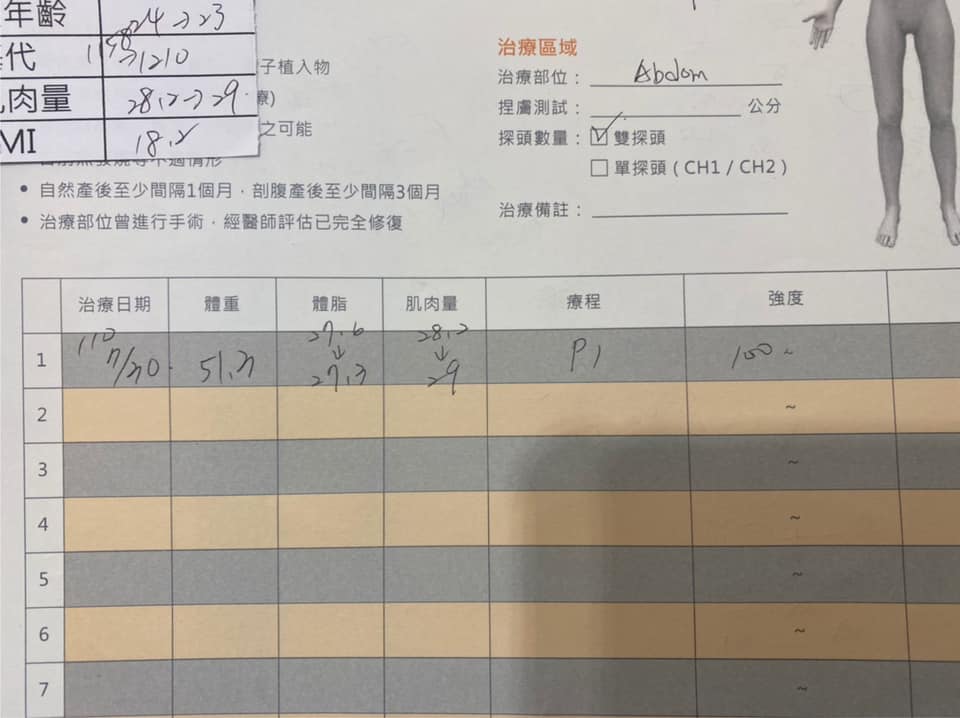 年齡 24→23
代 1158→1210
肉量 28.2→29.
MI 18.2
子植入物
療)
之可能
自然產後至少間隔1個月，剖腹產後至少間隔3個月
治療部位曾進行手術，經醫師評估已完全修復
治療區域
治療部位： Abdom
捏膚測試： 公分
探頭數量： 雙探頭
單探頭 ( CH1 / CH2 )
治療備註：
治療日期 體重 體脂 肌肉量 療程 強度
1 110 7/30. 51.3 27.6 ↓ 27.3 28.2 ↓ 29 P1 100 ~
2 ~
3 ~
4 ~
5 ~
6 ~
7 ~